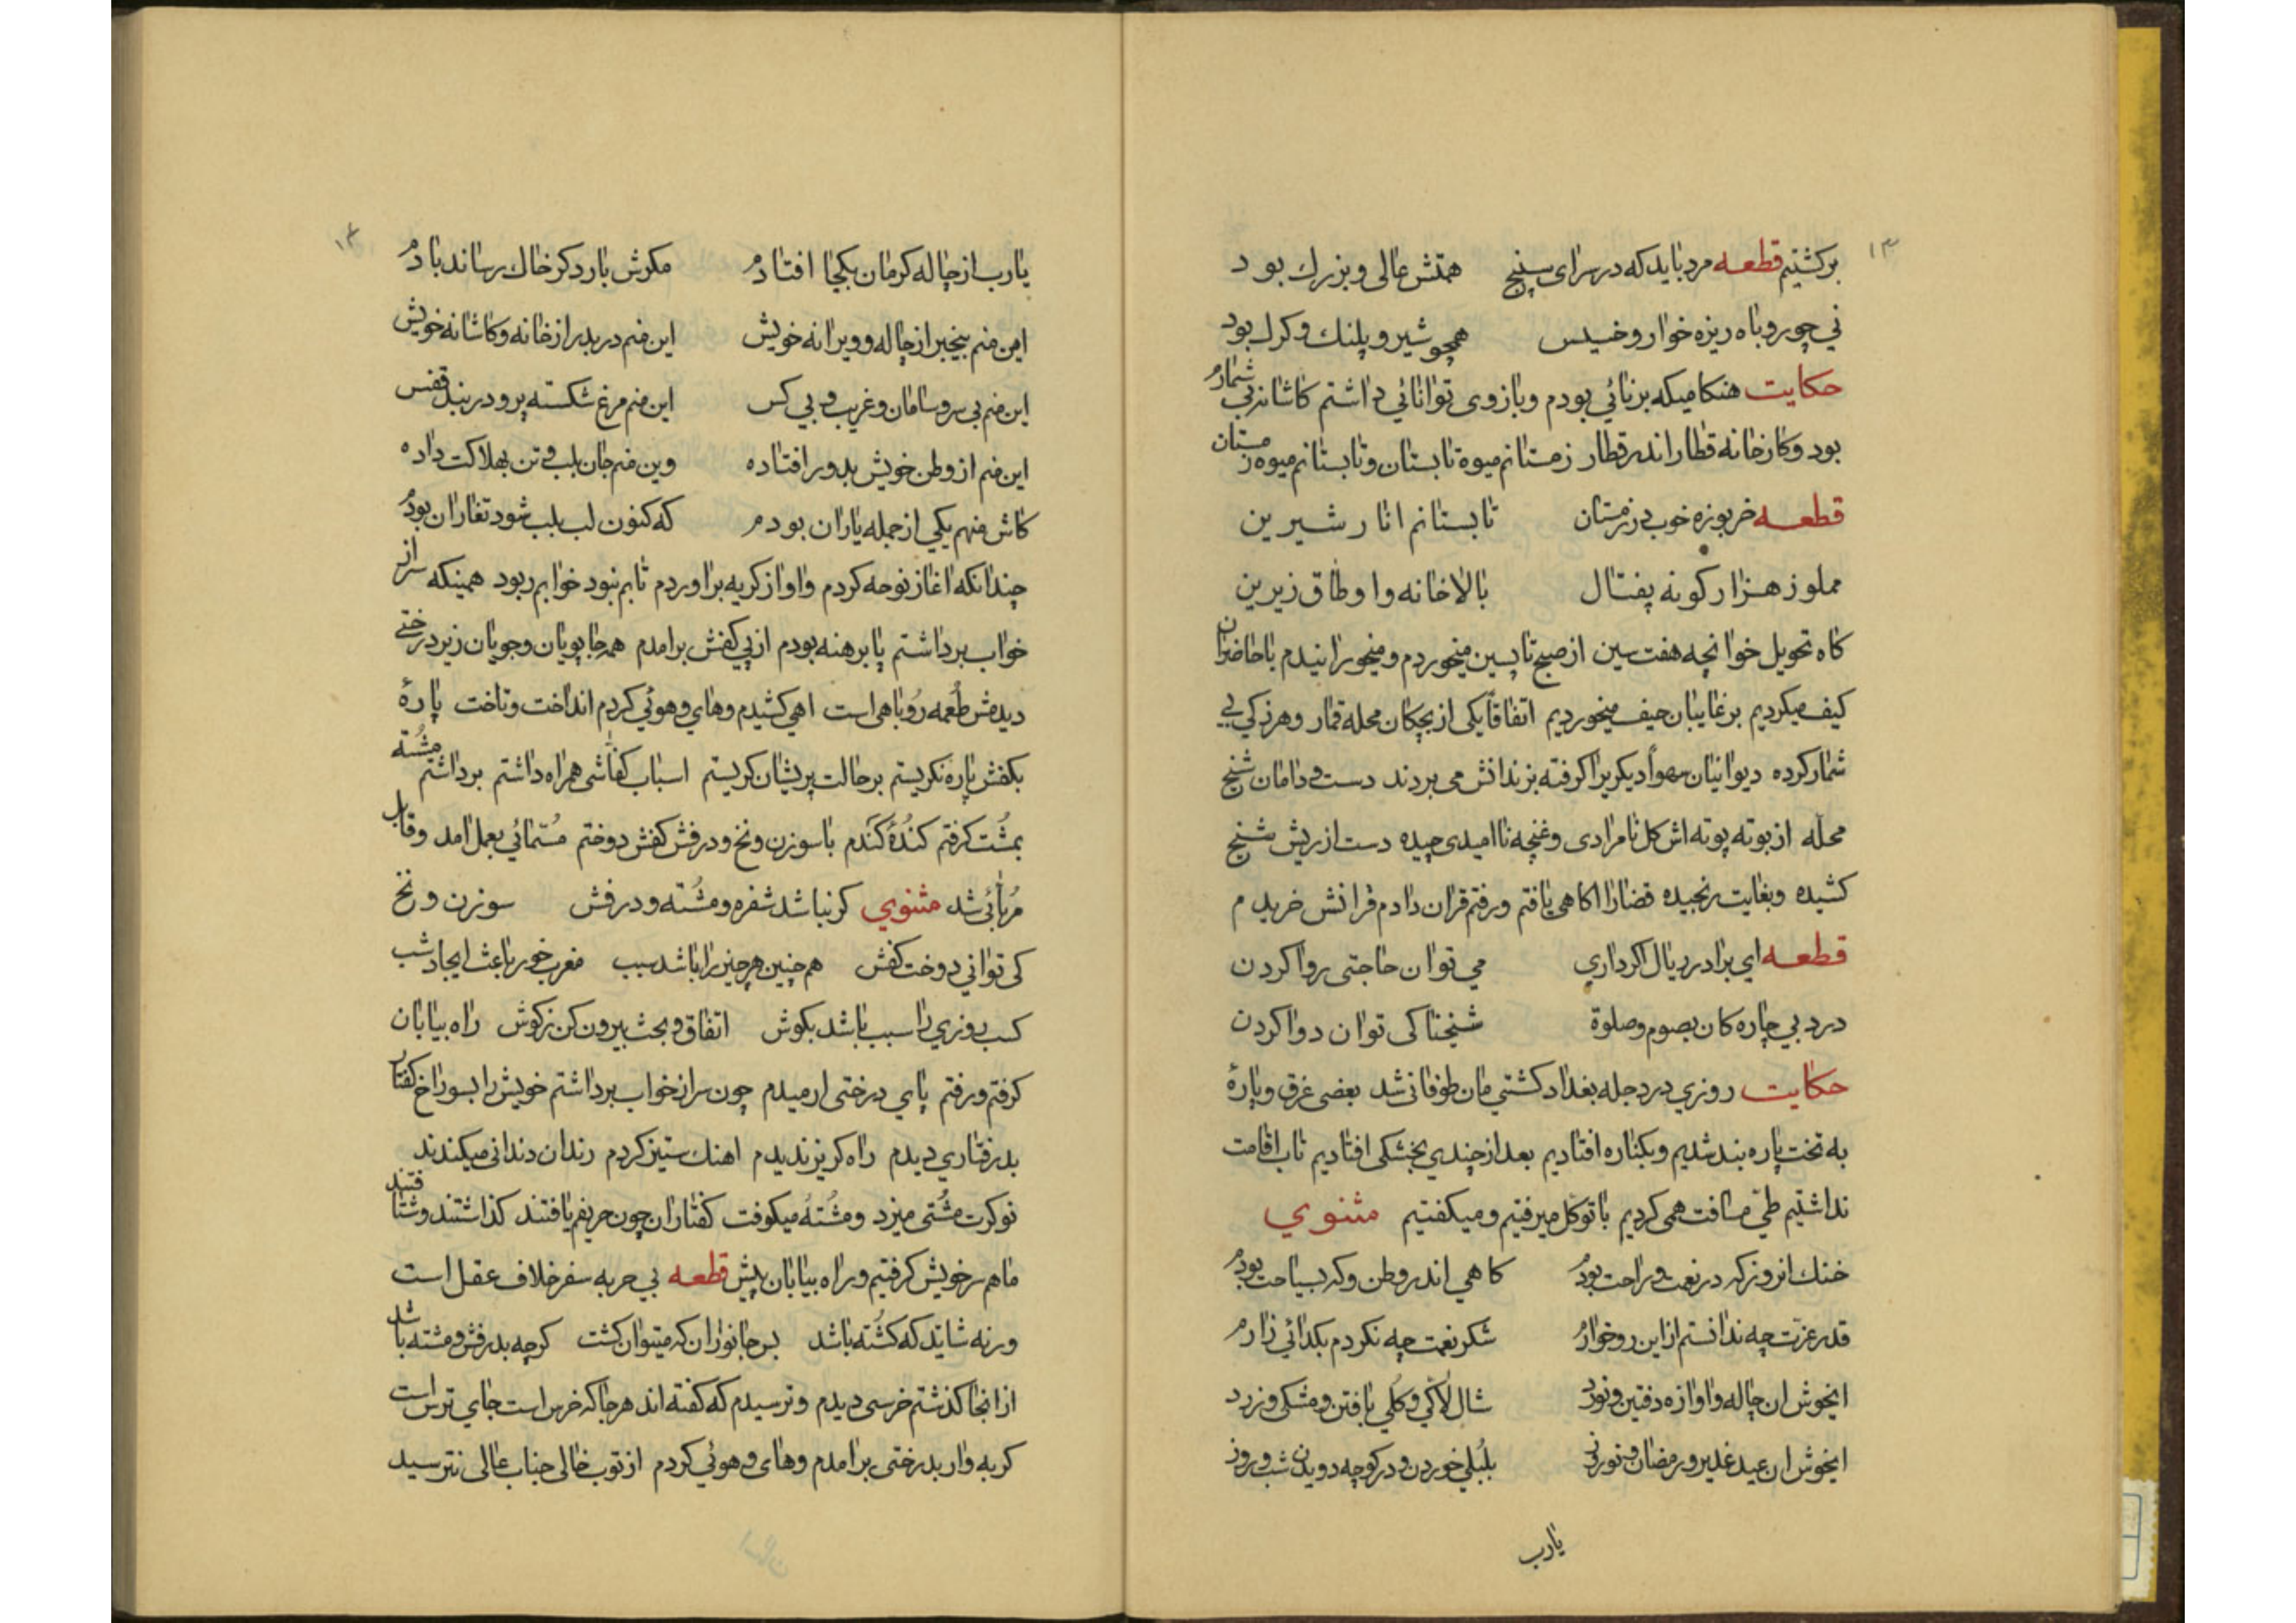 ۱۳
برکشتیم قطعه مرد باید که در سرای سپنج همتش عالی و بزرك بود
نی چو روباه ریزه خوار و خسیس همچو شیر و پلنك و کرك بود
حکایت هنکامیکه برنائی بودم و بازوی توانائی داشتم کاشانه بی شمارم
بود و کارخانه قطار اندر قطار زمستانم میوه تابستان و تابستانم میوه زمستان
قطعه خربوزه خوب در زمستان تابستانم انار شیرین
مملو ز هزار کونه پفتال بالاخانه و اوطاق زیرین
کاه تحویل خوانچه هفت سین از صبح تا پسین میخوردم و میخورانیدم با حاضران
کیف میکردیم بر غایبان حیف میخوردیم اتفاقاً یکی از بچکان محله قمار و هرزکی بی
شمار کرده دیوانیان سهواً دیکریرا کرفته بزندانش می بردند دست و دامان شیخ
محله از بوته پوته اش کل نامرادی و غنچه ناامیدی چیده دست از ریش شیخ
کشیده و بغایت رنجیده قضا را اکاهی یافتم و رفتم قران دادم قرانش خریدم
قطعه ای برادر ریال اکر داری می توان حاجتی روا کردن
درد بی چاره کان بصوم و صلوة شیخنا کی توان دوا کردن
حکایت روزی در دجله بغداد کشتی مان طوفانی شد بعضی غرق و پارهٔ
به تخت پاره بند شدیم و بکناره افتادیم بعد از چندی بخشکی افتادیم تاب اقامت
نداشتیم طی مسافت همی کردیم با توکل میرفتیم و میکفتیم مثنوی
خنك انروز که در نعمت و راحت بودم کاهی اندر وطن و که بسیاحت بودم
قدر عزت چه ندانستم از این رو خوارم شکر نعمت چه نکردم بکدائی زارم
ایخوش ان چاله و اوازه دفتین و نورد شال لاکی و کلی بافتن و مشکی و زرد
ایخوش ان عید غدیر و رمضان و نوروز بلبلی خوردن و در کوچه دویدن شب و روز
یارب
۱۴
یارب از چاله کرمان بکجا افتادم مکرش بارد کر خاك رساند بادم
این منم بیخبر از چاله و ویرانه خویش این منم در بدر از خانه و کاشانه خویش
این منم بی سر و سامان و غریب و بی کس این منم مرغ شکسته پر و در قفس
این منم از وطن خویش بدور افتاده وین منم جان بلب و تن بهلاکت داده
کاش منهم یکی از جمله یاران بودم که کنون لب بلب شود تغاران بودم
چندانکه اغاز نوحه کردم و اواز کریه براوردم تابم نبود خوابم ربود همینکه سر از
خواب برداشتم پا برهنه بودم از پی کفش برامدم همه جا پویان و جویان زیر درختی
دیدمش طعمه روباهی است اهی کشیدم و های و هوئی کردم انداخت و تاخت پارهٔ
بکفش پاره نکریستم بر حالت پریشان کریستم اسباب کفاشی همراه داشتم برداشتم مشته
بمشت کرفتم کندهٔ کندم با سوزن و نخ و درفش کفش دوختم مستمائی بعمل امد و قابل
مربائی شد مثنوی کر نباشد شفره و مشته و درفش سوزن و نخ
کی توانی دوخت کفش هم چنین هر چیز را باشد سبب مغرب خور باعث ایجاد شب
کسب روزی را سبب باشد بکوش اتفاق و بحث بیرون کن ز کوش راه بیابان
کرفتم و رفتم پای درختی ارمیدم چون سر از خواب برداشتم خویش را بسوراخ کفتار
بدرفتاری دیدم راه کریز ندیدم اهنك ستیز کردم رندان دندانی میکندند
نوکرت مشتی میزد و مشتهٔ میکوفت کفتاران چون حریفم یافتند کذاشتند و شتافتند
ما هم سر خویش کرفتیم و راه بیابان پیش قطعه بی حربه سفر خلاف عقل است
ورنه شاید که کشته باشد بس جانوران که میتوان کشت کرچه بدرفش و مشته باشد
از انجا کذشتم خرسی دیدم و ترسیدم که کفته اند هر جا که خرس است جای ترس است
کربه وار بدرختی برامدم و های و هوئی کردم از توپ خالی جناب عالی نترسید